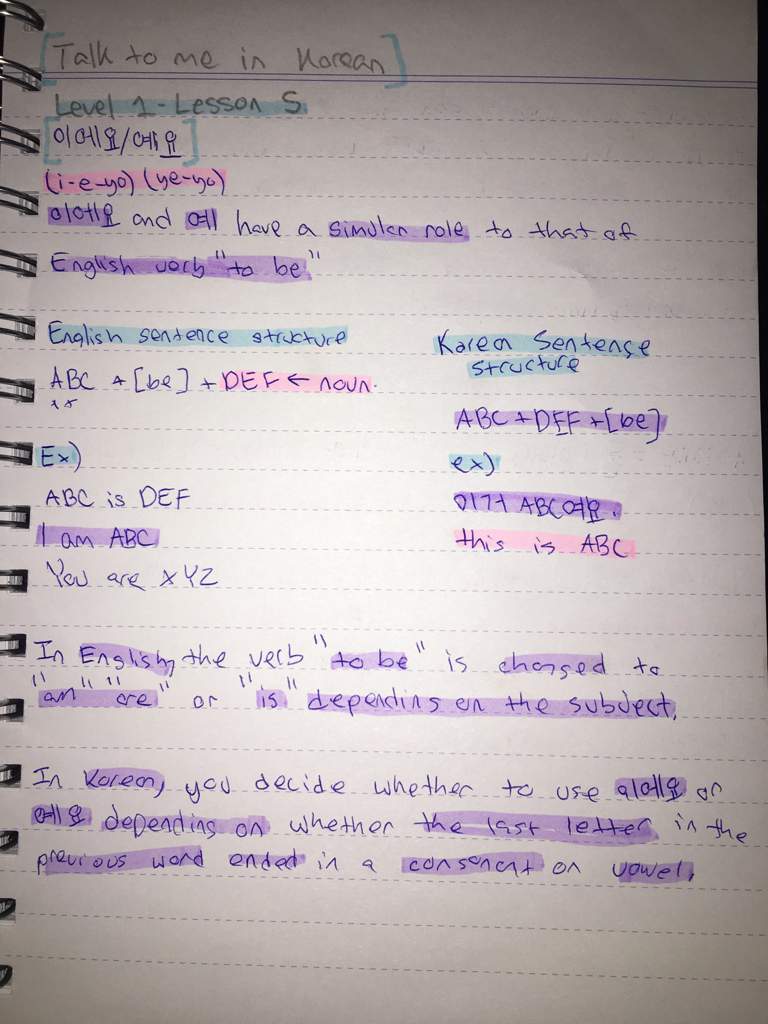 [Talk to me in Korean]
Level 1 - Lesson 5
[이에요/예요]
(i-e-yo) (ye-yo)
이에요 and 예 have a simular role to that of
English verb "to be"
English sentence structure
ABC + [be] + DEF ← noun.
Ex)
ABC is DEF
I am ABC
You are XYZ
Korean Sentence
structure
ABC + DEF + [be]
ex)
이거 ABC예요.
this is ABC
In English, the verb "to be" is changed to
"am" "are" or "is" depending on the subject.
In Korean, you decide whether to use 이에요 or
예요 depending on whether the last letter in the
previous word ended in a consonant or vowel.